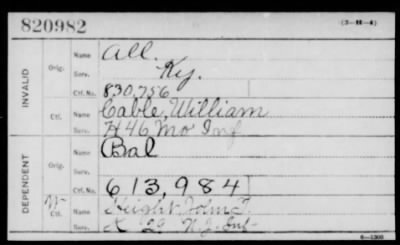 820982
(3-H-4)
INVALID
Orig.
Name All.
Serv. Ky.
Ctf. No. 830,756
Ctf.
Name Cable, William
Serv. H 46 Mo Inf
DEPENDENT
Orig.
Name Bal
Serv.
Ctf. No. 613,984
Ctf.
Name Height John
Serv. 29 N.J. Inf.
6-1300